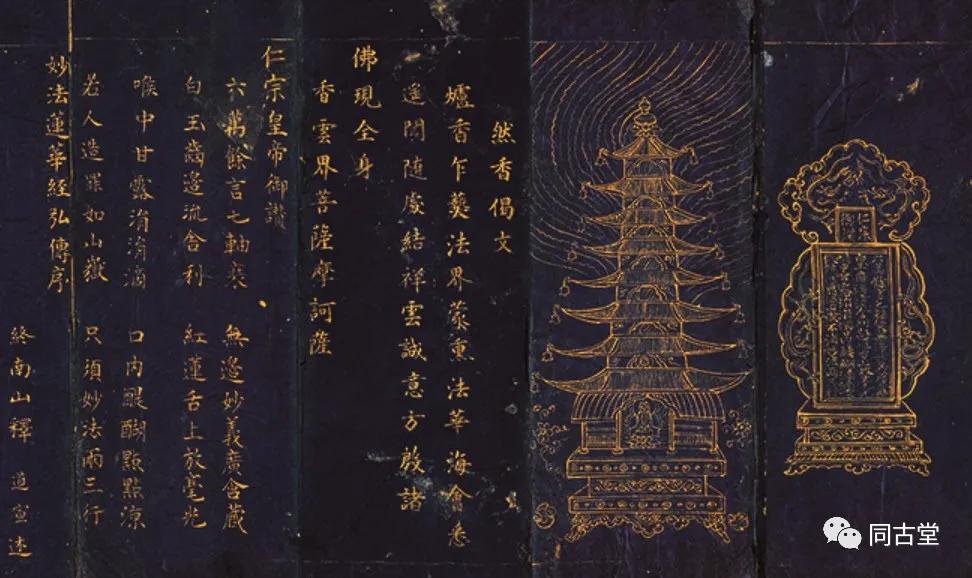 然香偈文
爐香乍爇法界蒙熏法華海會悉
遙聞随處結祥雲誠意方殷諸
佛現全身
香雲界菩薩摩訶薩
仁宗皇帝御讃
六萬餘言七軸裝 無邊妙義廣含藏
白玉齒邊流舍利 紅蓮舌上放毫光
喉中甘露涓涓滴 口内醍醐點點涼
若人造罪如山嶽 只須妙法兩三行
妙法蓮華經弘傳序
終南山釋 道宣 述
同古堂